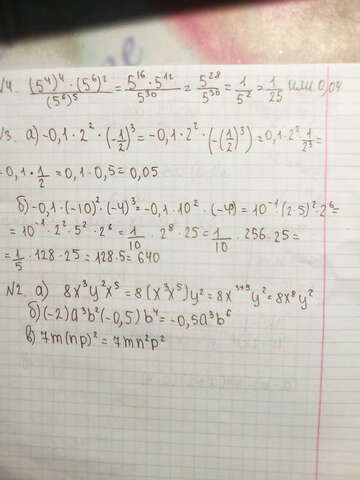 √4. (5⁴)⁴ · (5⁶)² / (5⁶)⁵ = 5¹⁶ · 5¹² / 5³⁰ = 5²⁸ / 5³⁰ = 1/5² = 1/25 или 0,04
√3. а) -0,1 · 2² · (-1/2)³ = -0,1 · 2² · (-(1/2)³) = 0,1 · 2² · 1/2³ =
= 0,1 · 1/2 = 0,1 · 0,5 = 0,05
б) -0,1 · (-10)² · (-4)³ = -0,1 · 10² · (-4³) = 10⁻¹ (2·5)² · 2⁶ =
= 10⁻¹ · 2² · 5² · 2⁶ = 1/10 · 2⁸ · 25 = 1/10 · 256 · 25 =
= 1/5 · 128 · 25 = 128 · 5 = 640
№2. а) 8x³y²x⁵ = 8(x³x⁵)y² = 8x³⁺⁵y² = 8x⁸y²
б) (-2)a³b²(-0,5)b⁴ = -0,5a³b⁶
в) 7m(np)² = 7mn²p²